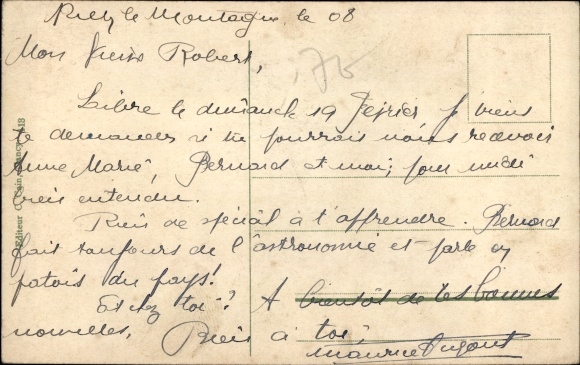 Rilly la Montagne le 08
Mon vieux Robert,
175
Libre le dimanche 19 Février je viens
te demander si tu pourrais nous recevoir
Anne Marie, Bernard et moi; pour midi
bien entendu.
Rien de spécial à t'apprendre. Bernard
fait toujours de l'astronomie et parle en
patois du pays!
Et chez toi? A bientôt de tes bonnes
nouvelles. Bien à toi,
Maurice
Editeur